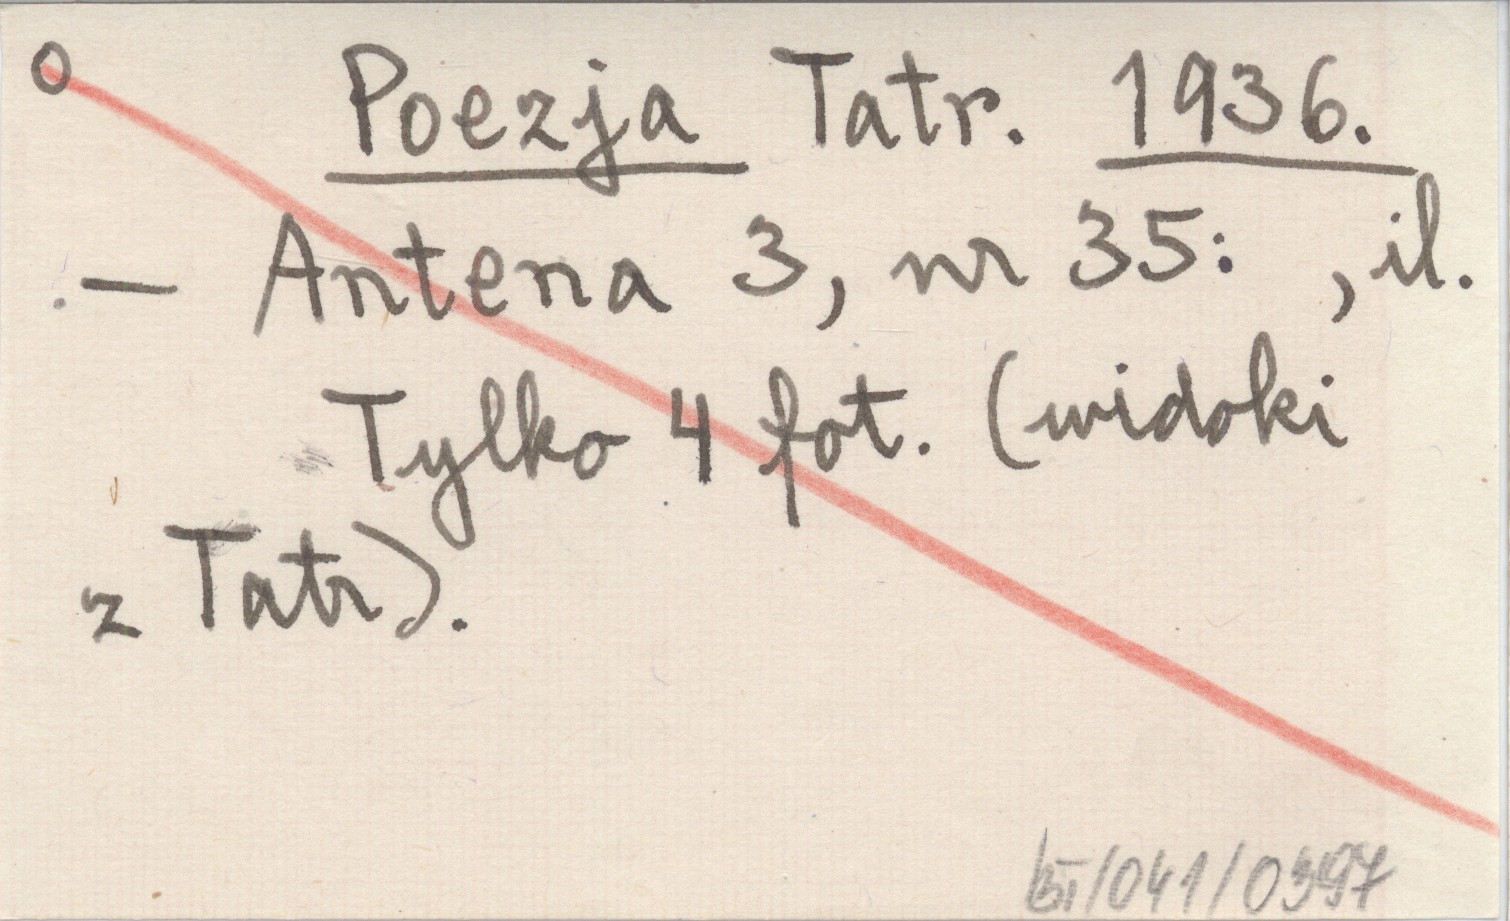 O Poezja Tatr. 1936.
— Antena 3, nr 35: , il.
Tylko 4 fot. (widoki
z Tatr).
/041/0397